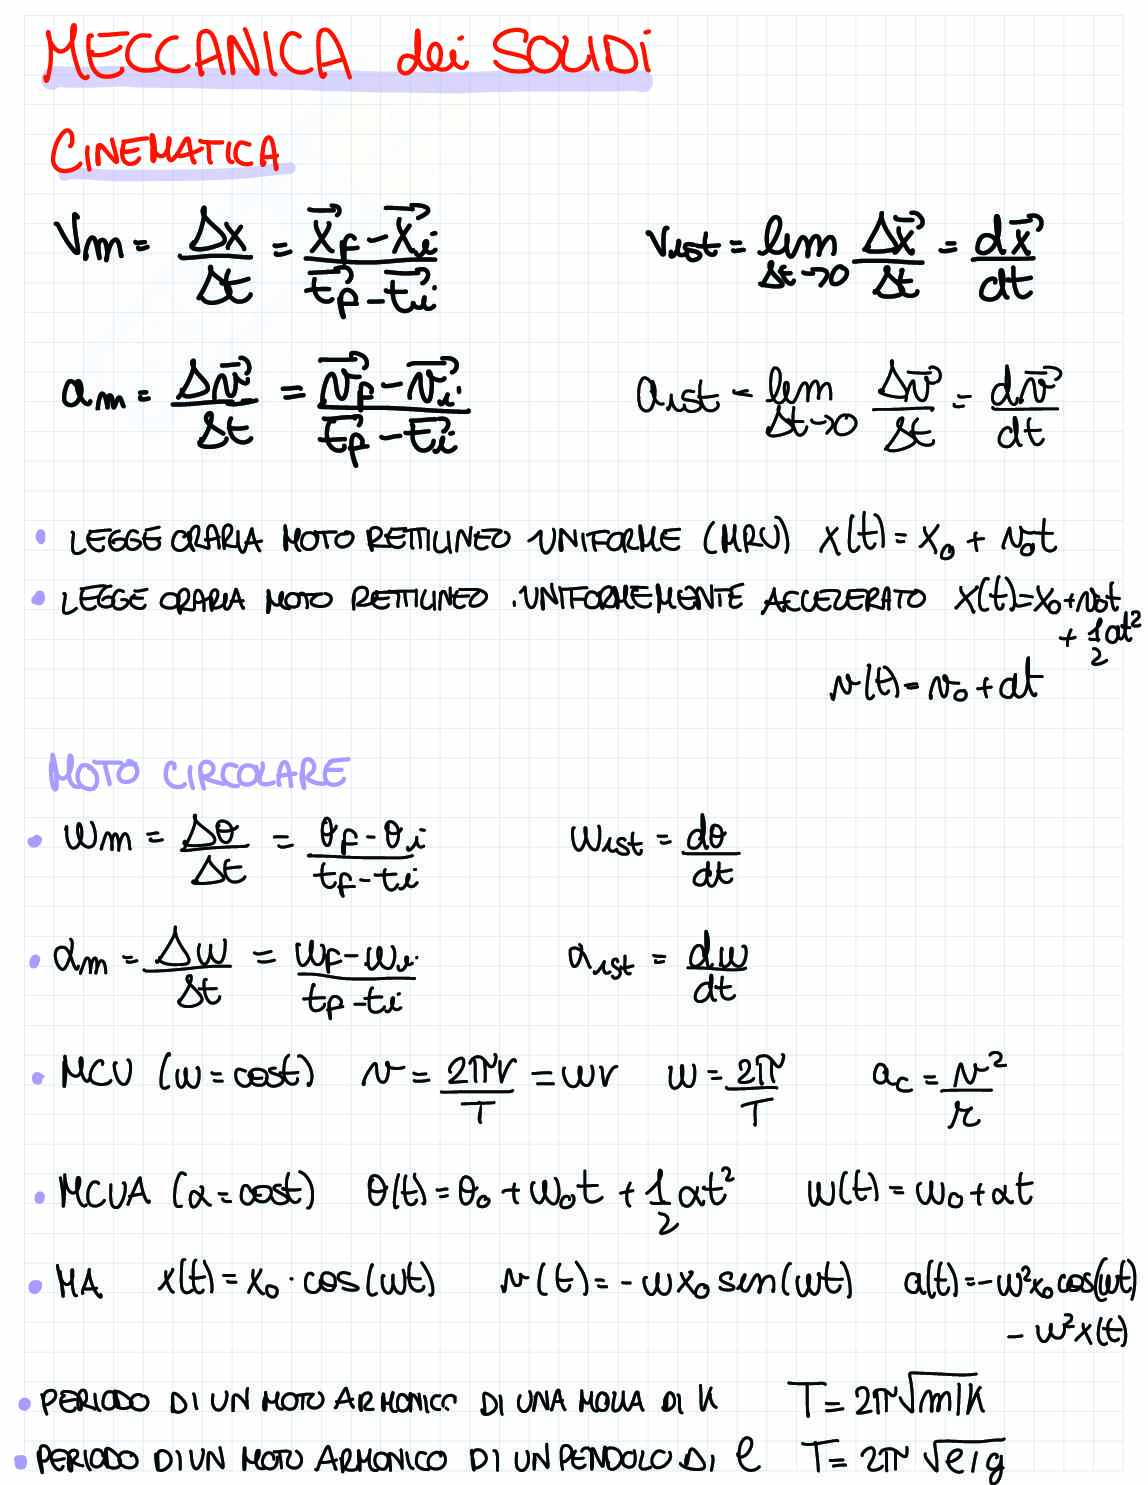 MECCANICA dei SOLIDI
CINEMATICA
Vm = Δx/Δt = (x⃗f - x⃗i)/(t⃗f - t⃗i)    vist = lim Δt→0 Δx⃗/Δt = dx⃗/dt
am = Δv⃗/Δt = (v⃗f - v⃗i)/(t⃗f - t⃗i)    aist = lim Δt→0 Δv⃗/Δt = dv⃗/dt
• LEGGE ORARIA MOTO RETTILINEO UNIFORME (MRU) x(t) = x₀ + v₀t
• LEGGE ORARIA MOTO RETTILINEO UNIFORMEMENTE ACCELERATO x(t) = x₀ + v₀t
+ 1/2 at²
v(t) = v₀ + at
MOTO CIRCOLARE
• ωm = Δθ/Δt = (θf - θi)/(tf - ti)    ωist = dθ/dt
• αm = Δω/Δt = (ωf - ωi)/(tf - ti)    αist = dω/dt
• MCU (ω = cost)  v = 2πr/T = ωr  ω = 2π/T  ac = v²/r
• MCUA (α = cost)  θ(t) = θ₀ + ω₀t + 1/2 αt²  ω(t) = ω₀ + αt
• MA  x(t) = x₀ · cos(ωt)  v(t) = - ωx₀ sen(ωt)  a(t) = -ω²x₀ cos(ωt)
- ω²x(t)
• PERIODO DI UN MOTO ARMONICO DI UNA MOLLA DI K  T = 2π√m/K
• PERIODO DI UN MOTO ARMONICO DI UN PENDOLO DI l  T = 2π√l/g